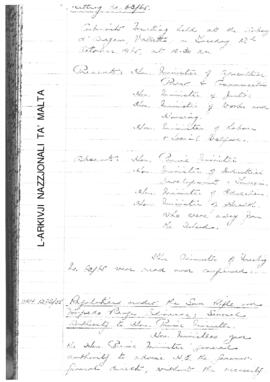 Meeting No. 63/65.
Cabinet Meeting held at the Auberge
d'Aragon, Valletta on Tuesday 12th
October 1965, at 10.30 am.
Present: Hon. Minister of Agriculture
Power & Communications
Hon. Minister of Justice
Hon. Minister of Works and
Housing.
Hon. Minister of Labour
& Social Welfare.
Absent: Hon. Prime Minister
Hon. Minister of Industrial
Development & Tourism
Hon. Minister of Education
Hon. Minister of Health.
who were away from
the Islands.
The Minutes of Meeting
No. 62/65 were read and confirmed.
Regulations under the
Authority to Hon. Prime Minister.
Hon. Ministers gave
the Hon. Prime Minister
authority to advise H.E. the Governor
General direct, without the necessity
L-ARKIVJI NAZZJONALI TA' MALTA